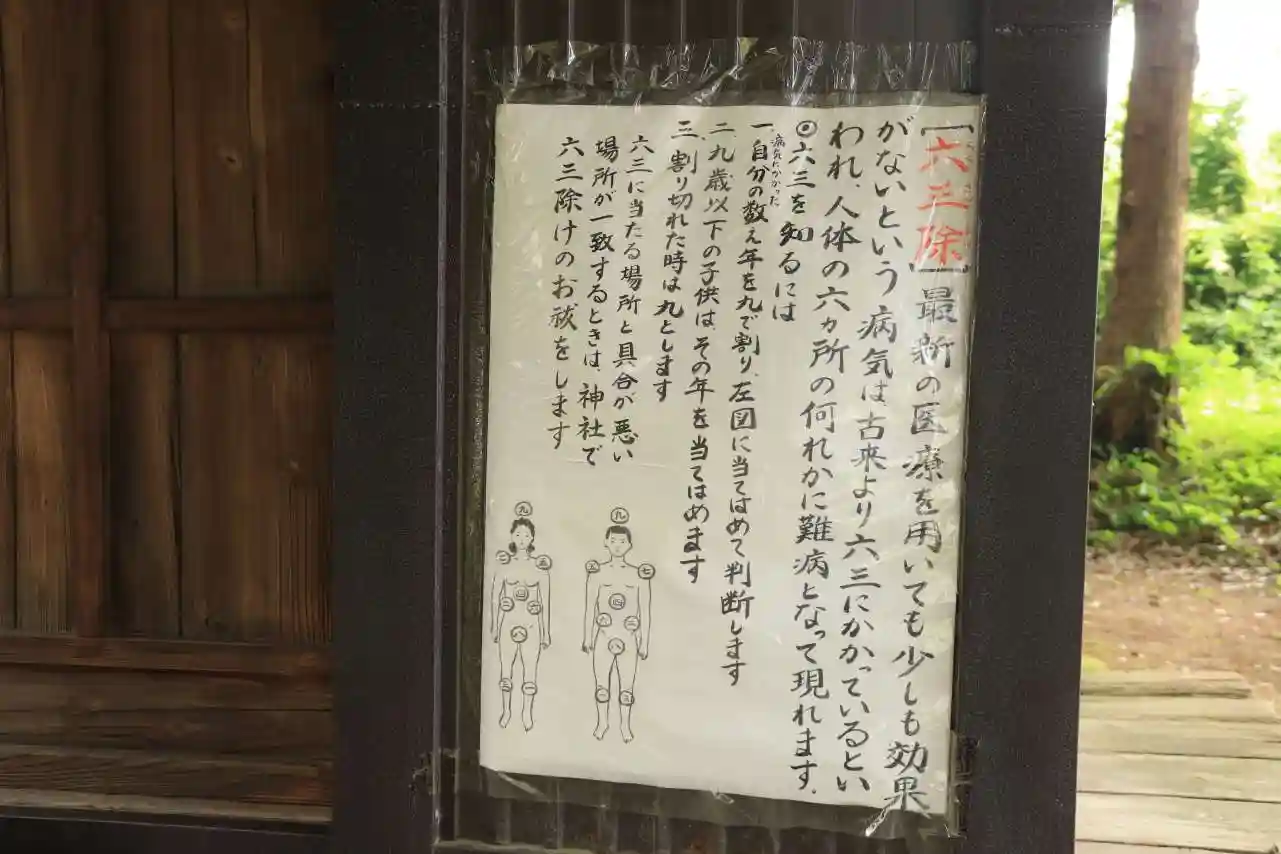 ［六三除］最新の医療を用いても少しも効果
がないという病気は古来より六三にかかっているとい
われ、人体の六ヵ所の何れかに難病となって現れます。
◎六三を知るには
病気にかかった
一、自分の数え年を九で割り、左図に当てはめて判断します
二、九歳以下の子供は、その年を当てはめます
三、割り切れた時は九とします
六三に当たる場所と具合が悪い
場所が一致するときは、神社で
六三除けのお祓をします
九
五
七
四
六
二
八
一
三
九
二
五
四
六
八
一